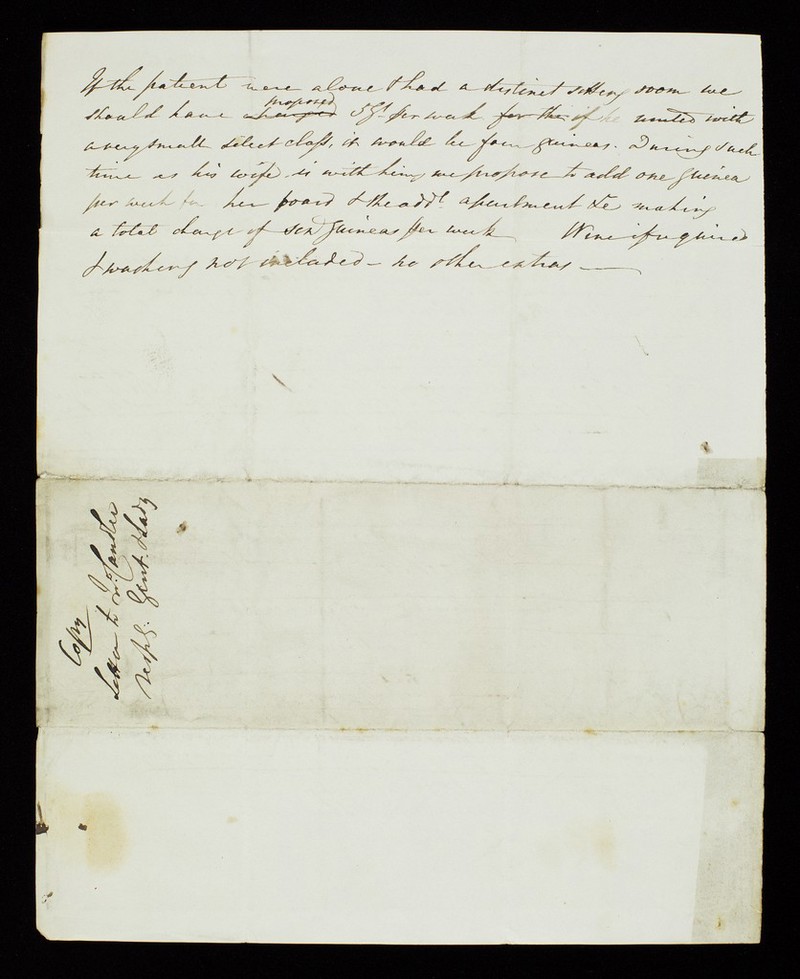 If the patient were alone & had a distinct sitting room we
should have charged proposed 5 Gs. per week for this if he united with
a very small select class, it would be four guineas. During such
time as his wife is with him, we propose to add one guinea
per week for her board & the addl. apartment &c making
a total charge of six guineas per week Wine if required
& washing not included – no other extras —
Copy
Letter to Mr. Candler
resps. Gent. & Lady